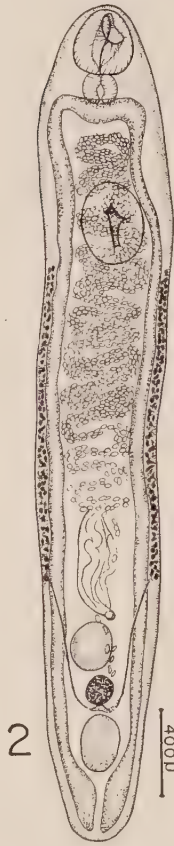 2
400μ